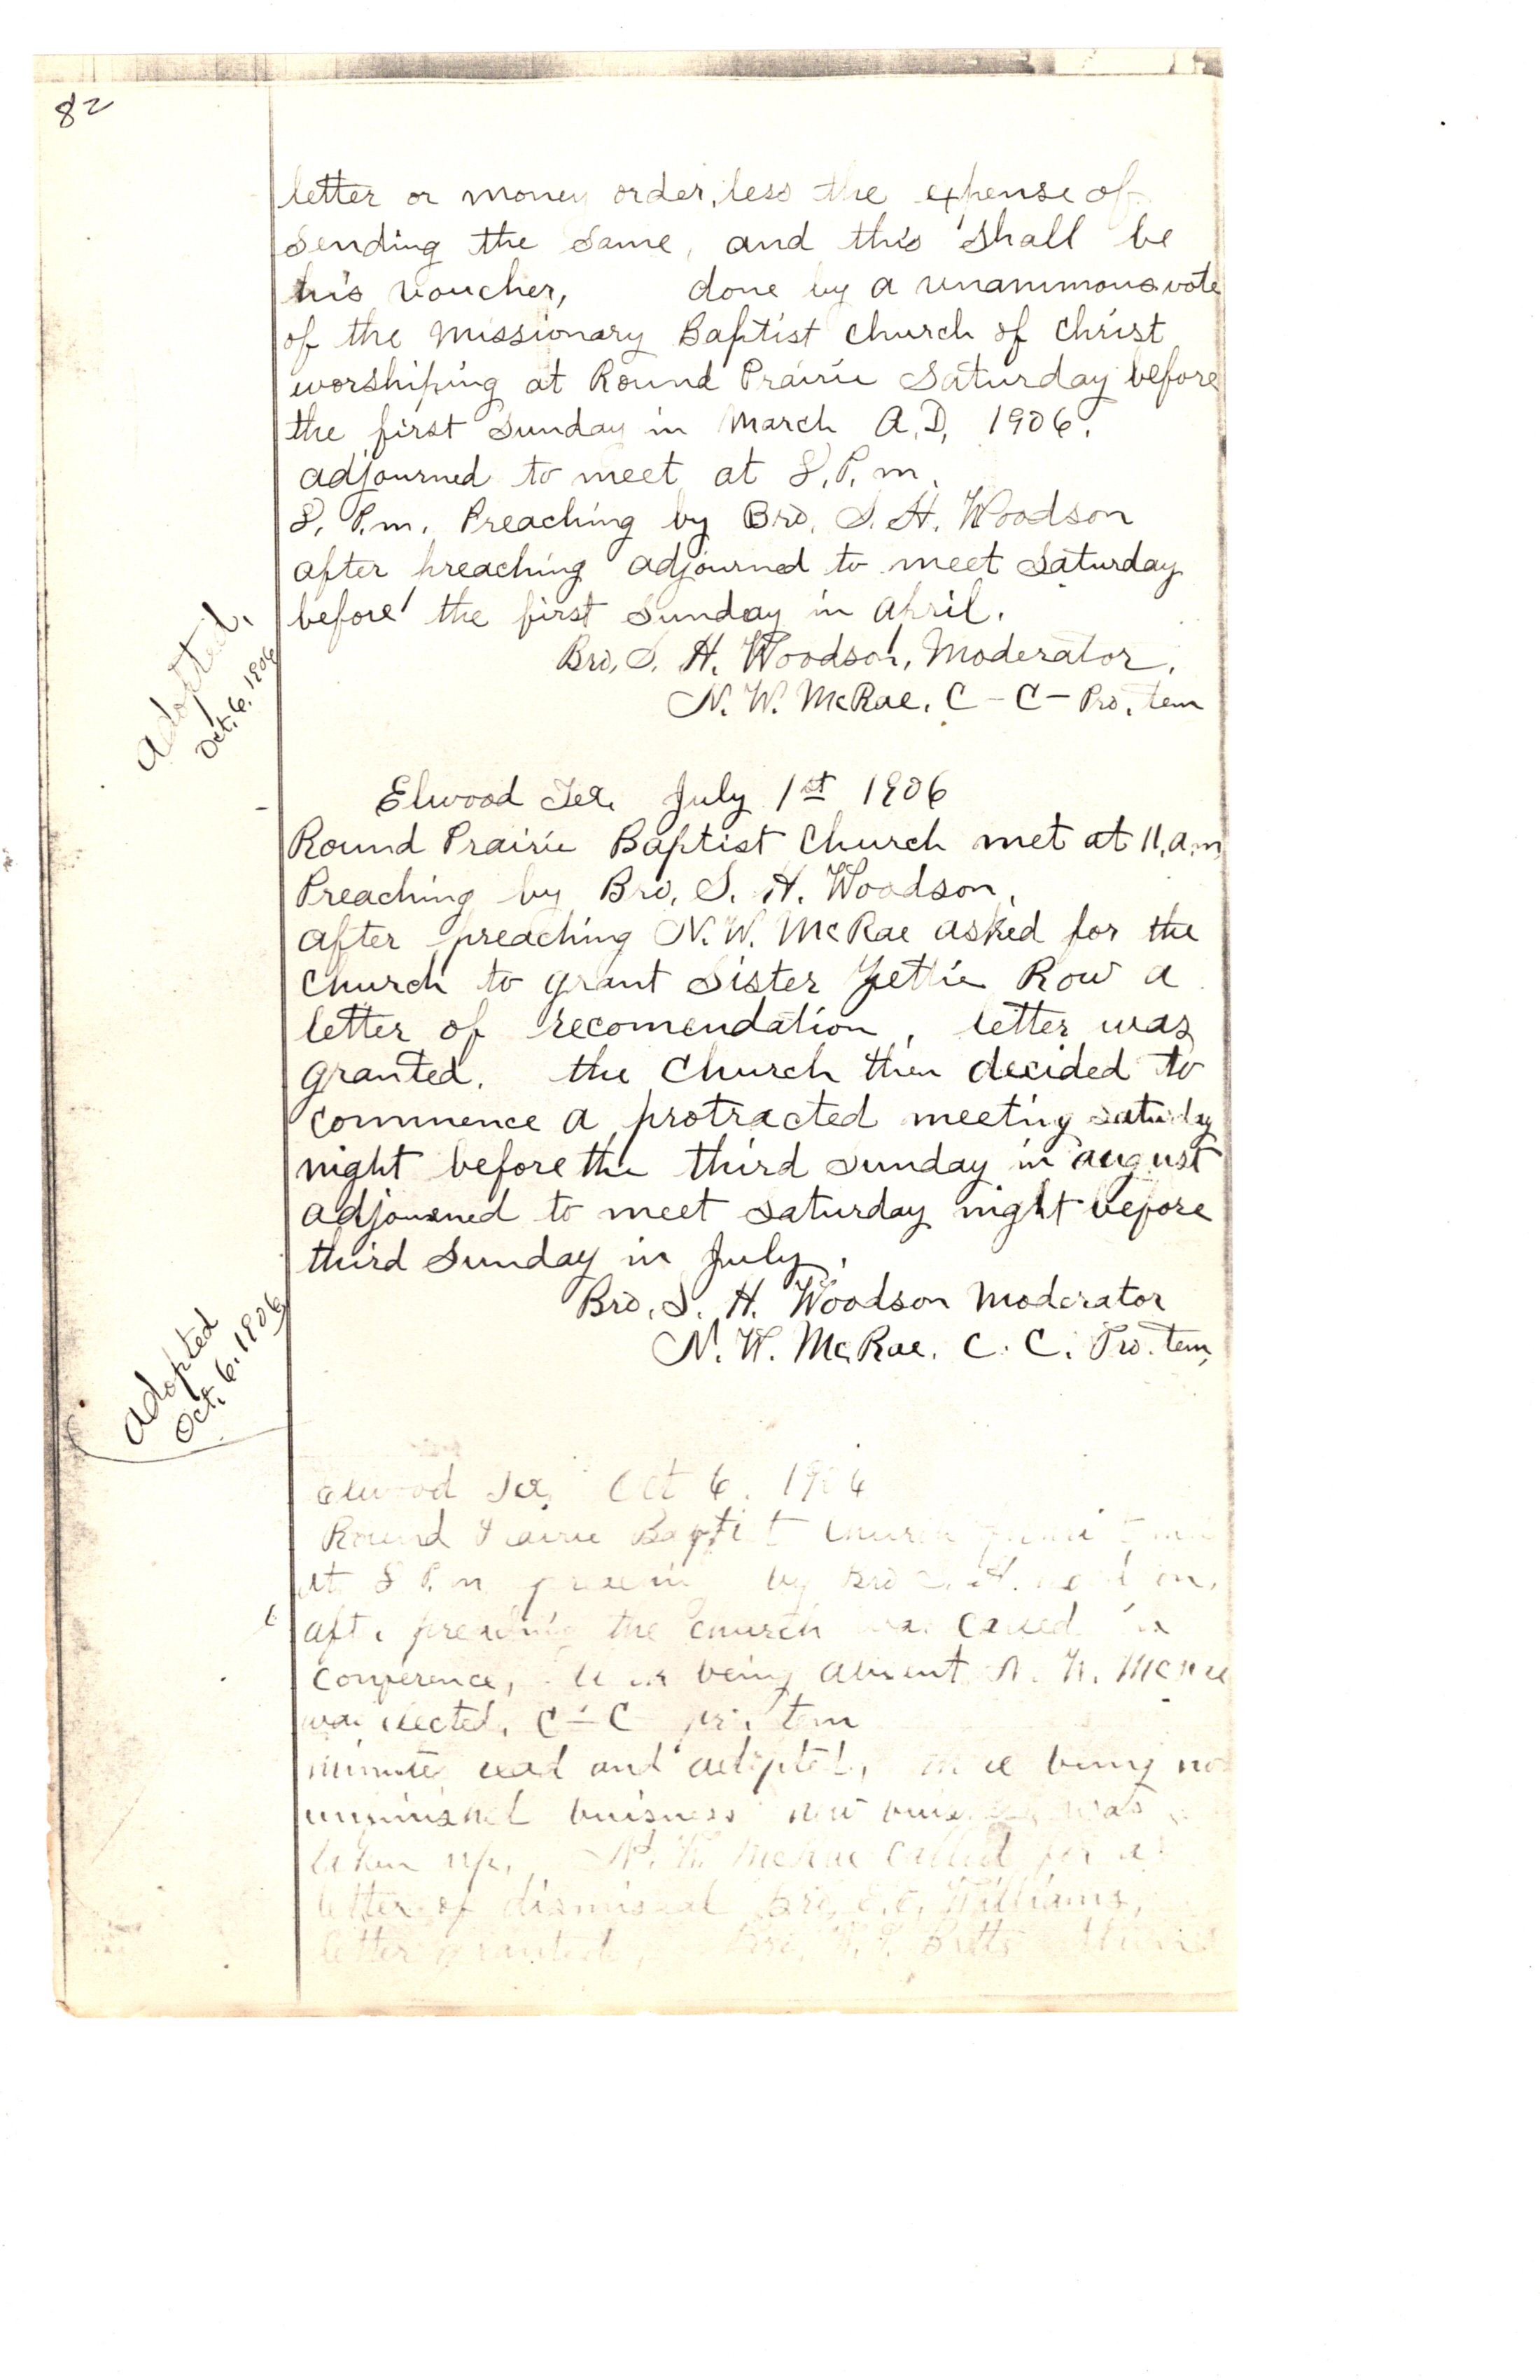 82
letter or money order, less the expense of
sending the same, and this shall be
his voucher, done by a unanimous vote
of the Missionary Baptist Church of Christ
worshiping at Round Prairie Saturday before
the first Sunday in March A.D, 1906.
adjourned to meet at 8, P, m,
8, P.m. Preaching by Bro, S. H. Woodson
after preaching adjourned to meet Saturday
before the first Sunday in April.
Adopted,
Oct. 6. 1906
Bro, S. H. Woodson, Moderator,
N. W. McRae, C - C - Pro, tem
Elwood Tex, July 1st 1906
Round Prairie Baptist Church met at 11, a, m,
Preaching by Bro, S. H. Woodson,
after preaching N. W. McRae asked for the
Church to grant Sister Row a
letter of recomendation, letter was
granted. the Church then decided to
commence a protracted meeting saturday
night before the third Sunday in august
adjourned to meet Saturday night before
third Sunday in July,
Bro, S. H. Woodson Moderator
N. W. McRae. C. C. Pro. tem,
adopted
Oct. 6. 1906
Elwood Tex, Oct 6. 1906
Round Prairie Baptist Church
at 8 P. m by Bro S. H.
after preaching the church was called in
conference, being absent N. W. McRae
was elected, C - C pro tem
minutes read and adopted, there being no
unfinished buisness new was
taken up, N. W. McRae called for a
letter of dismissal Bro, Williams,
letter granted, Bro, Betts